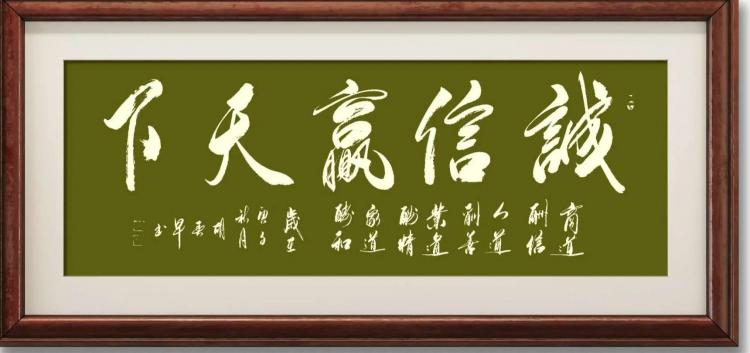 誠信贏天下
商道
酬信
人道
酬善
業道
酬精
家道
酬和
歲在
庚子
秋月
胡
早
書